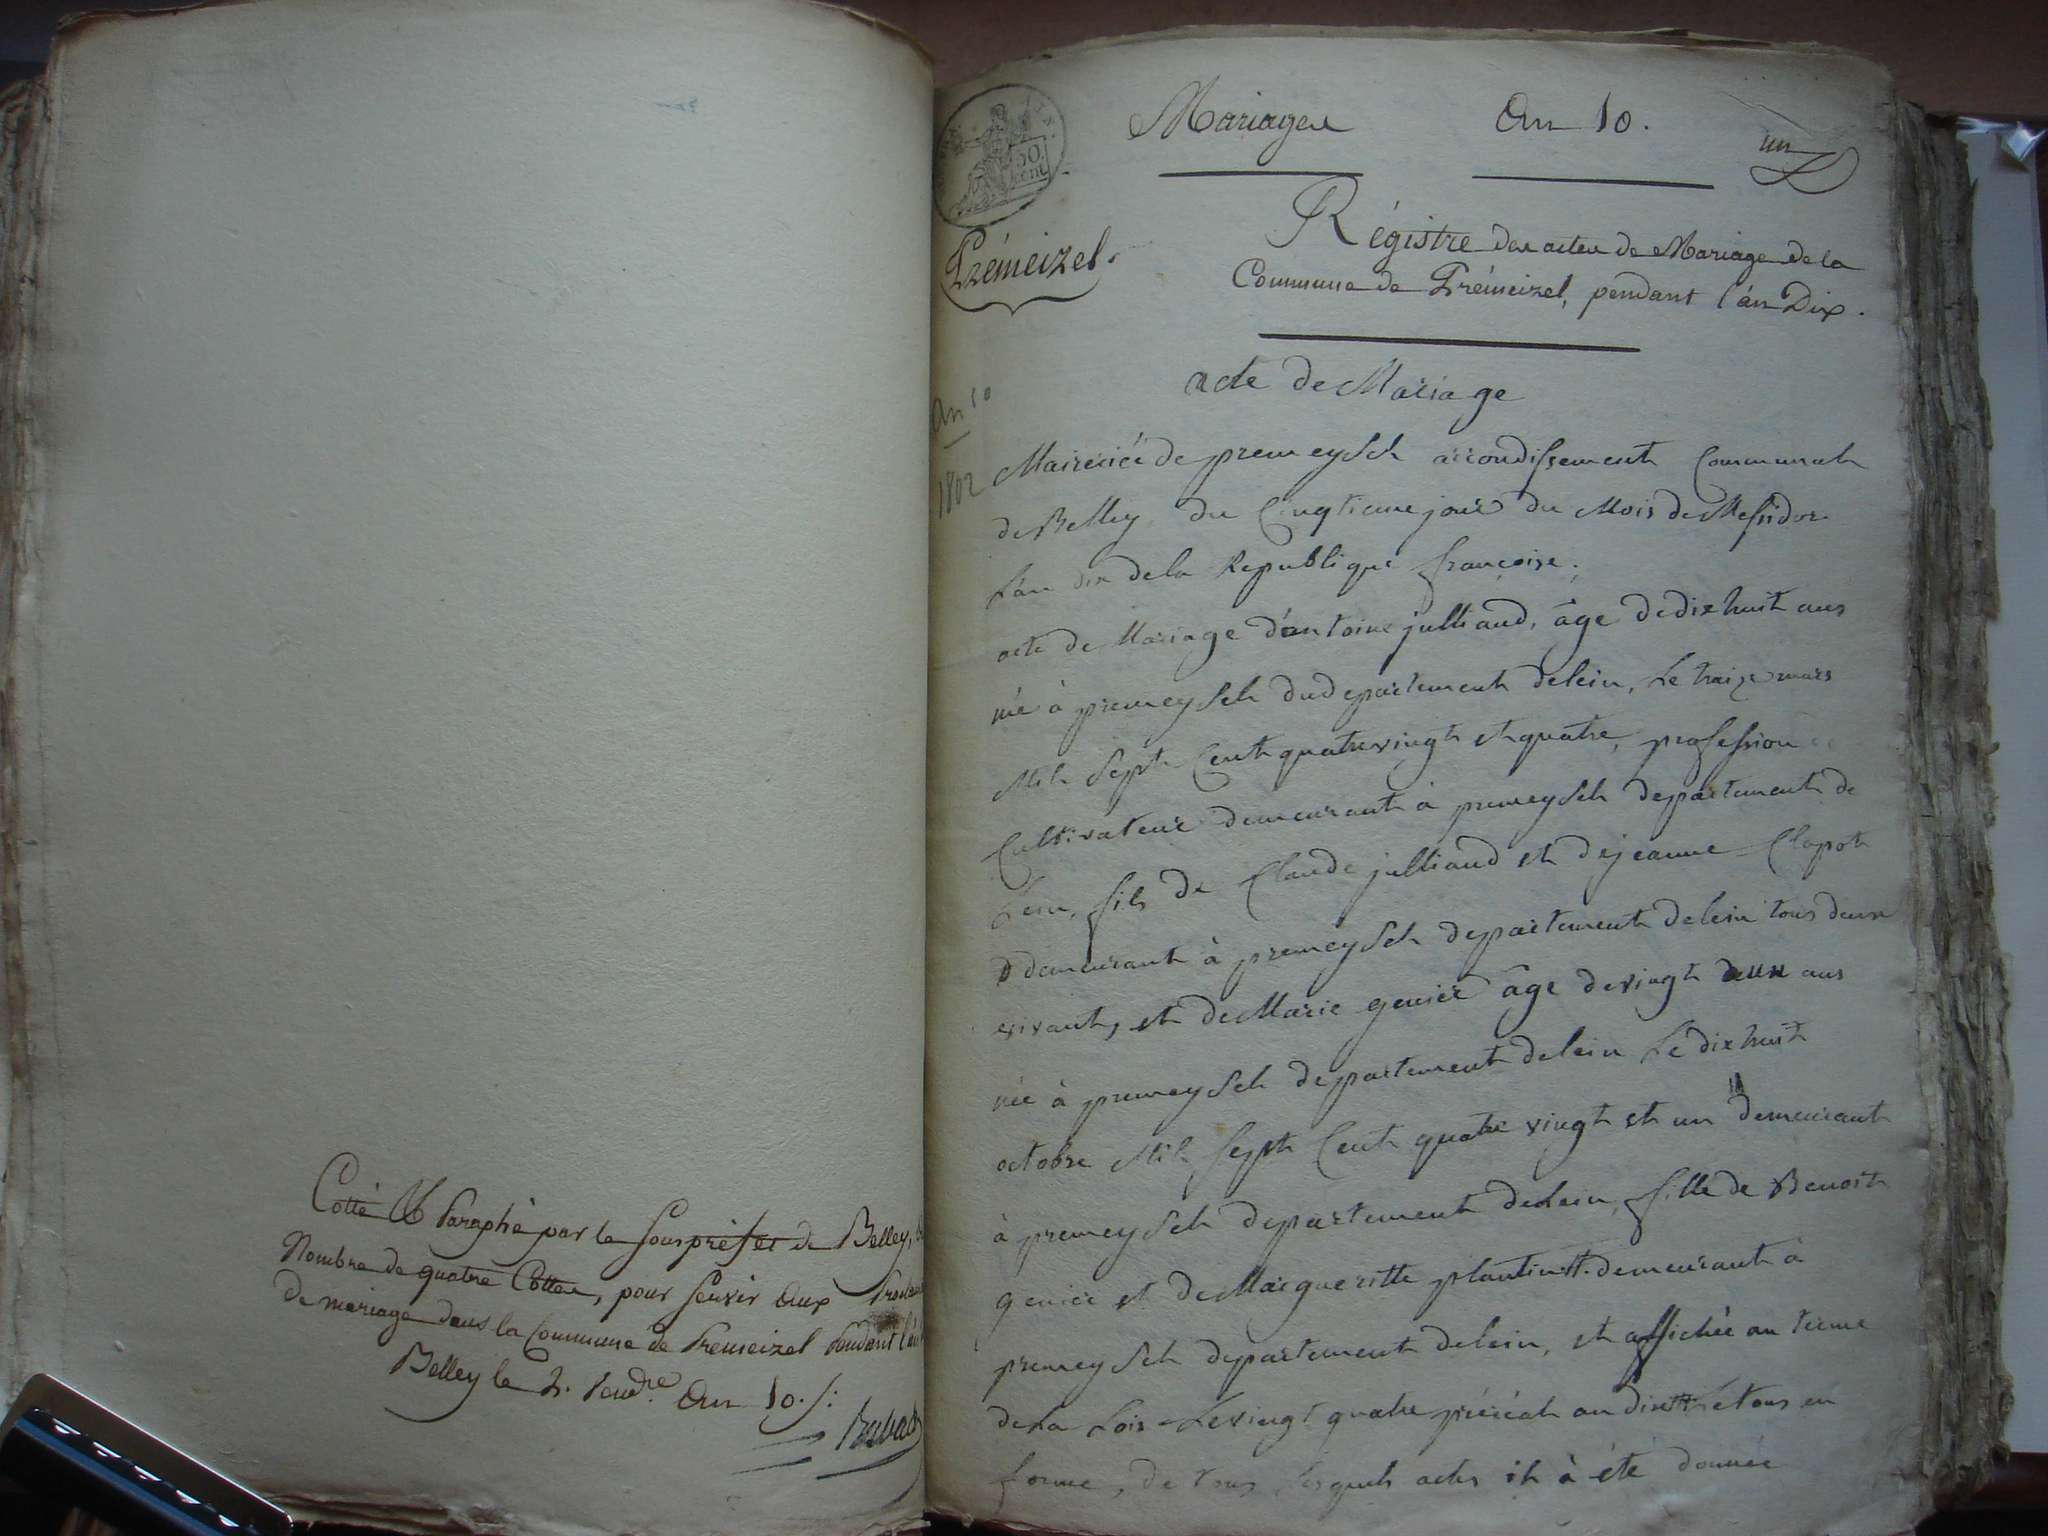 Cotté & Paraphé par le Sousprefet de Belley,
Nombre de quatre Cottes, pour servir aux
de mariage dans la Commune de Prémeizel Pendant l'an
Belley le 2. Vend.re An 10./:
Mariages An 10.
un
50.
cent
Prémeizel.
Régistre des actes de Mariage de la
Commune de Prémeizel, pendant l'an Dix.
acte de Mariage
An 10
1802
Mairerièe de premeysel arrondissement Communal
de Belley du vingtieme jour du Mois de Messidor
L'an dix de la Republique françoise.
acte de Mariage d'antoine julliand, âge de dix huit ans
né à premeysel du departement de lein, Le traize mars
Mil Sept Cent quatre vingt et quatre, profession
Cultivateur demeurant à premeysel departement de
Lein, fils de Claude julliand et de jeanne Clapot
demeurant à premeysel departement de lein tous deux
vivant, et de Marie genier âge de vingt deux ans
née à premeysel departement de lein Le dix huit
octobre Mil Sept Cent quatre vingt et un demeurant
à premeysel departement de Lein, fille de Benoit
genier et de Margueritte plantin demeurant à
premeysel departement de lein, et affichée au terme
de La Loi Le vingt quatre prérial an dix et tous en
forme, de tous lesquels actes il à été donnée